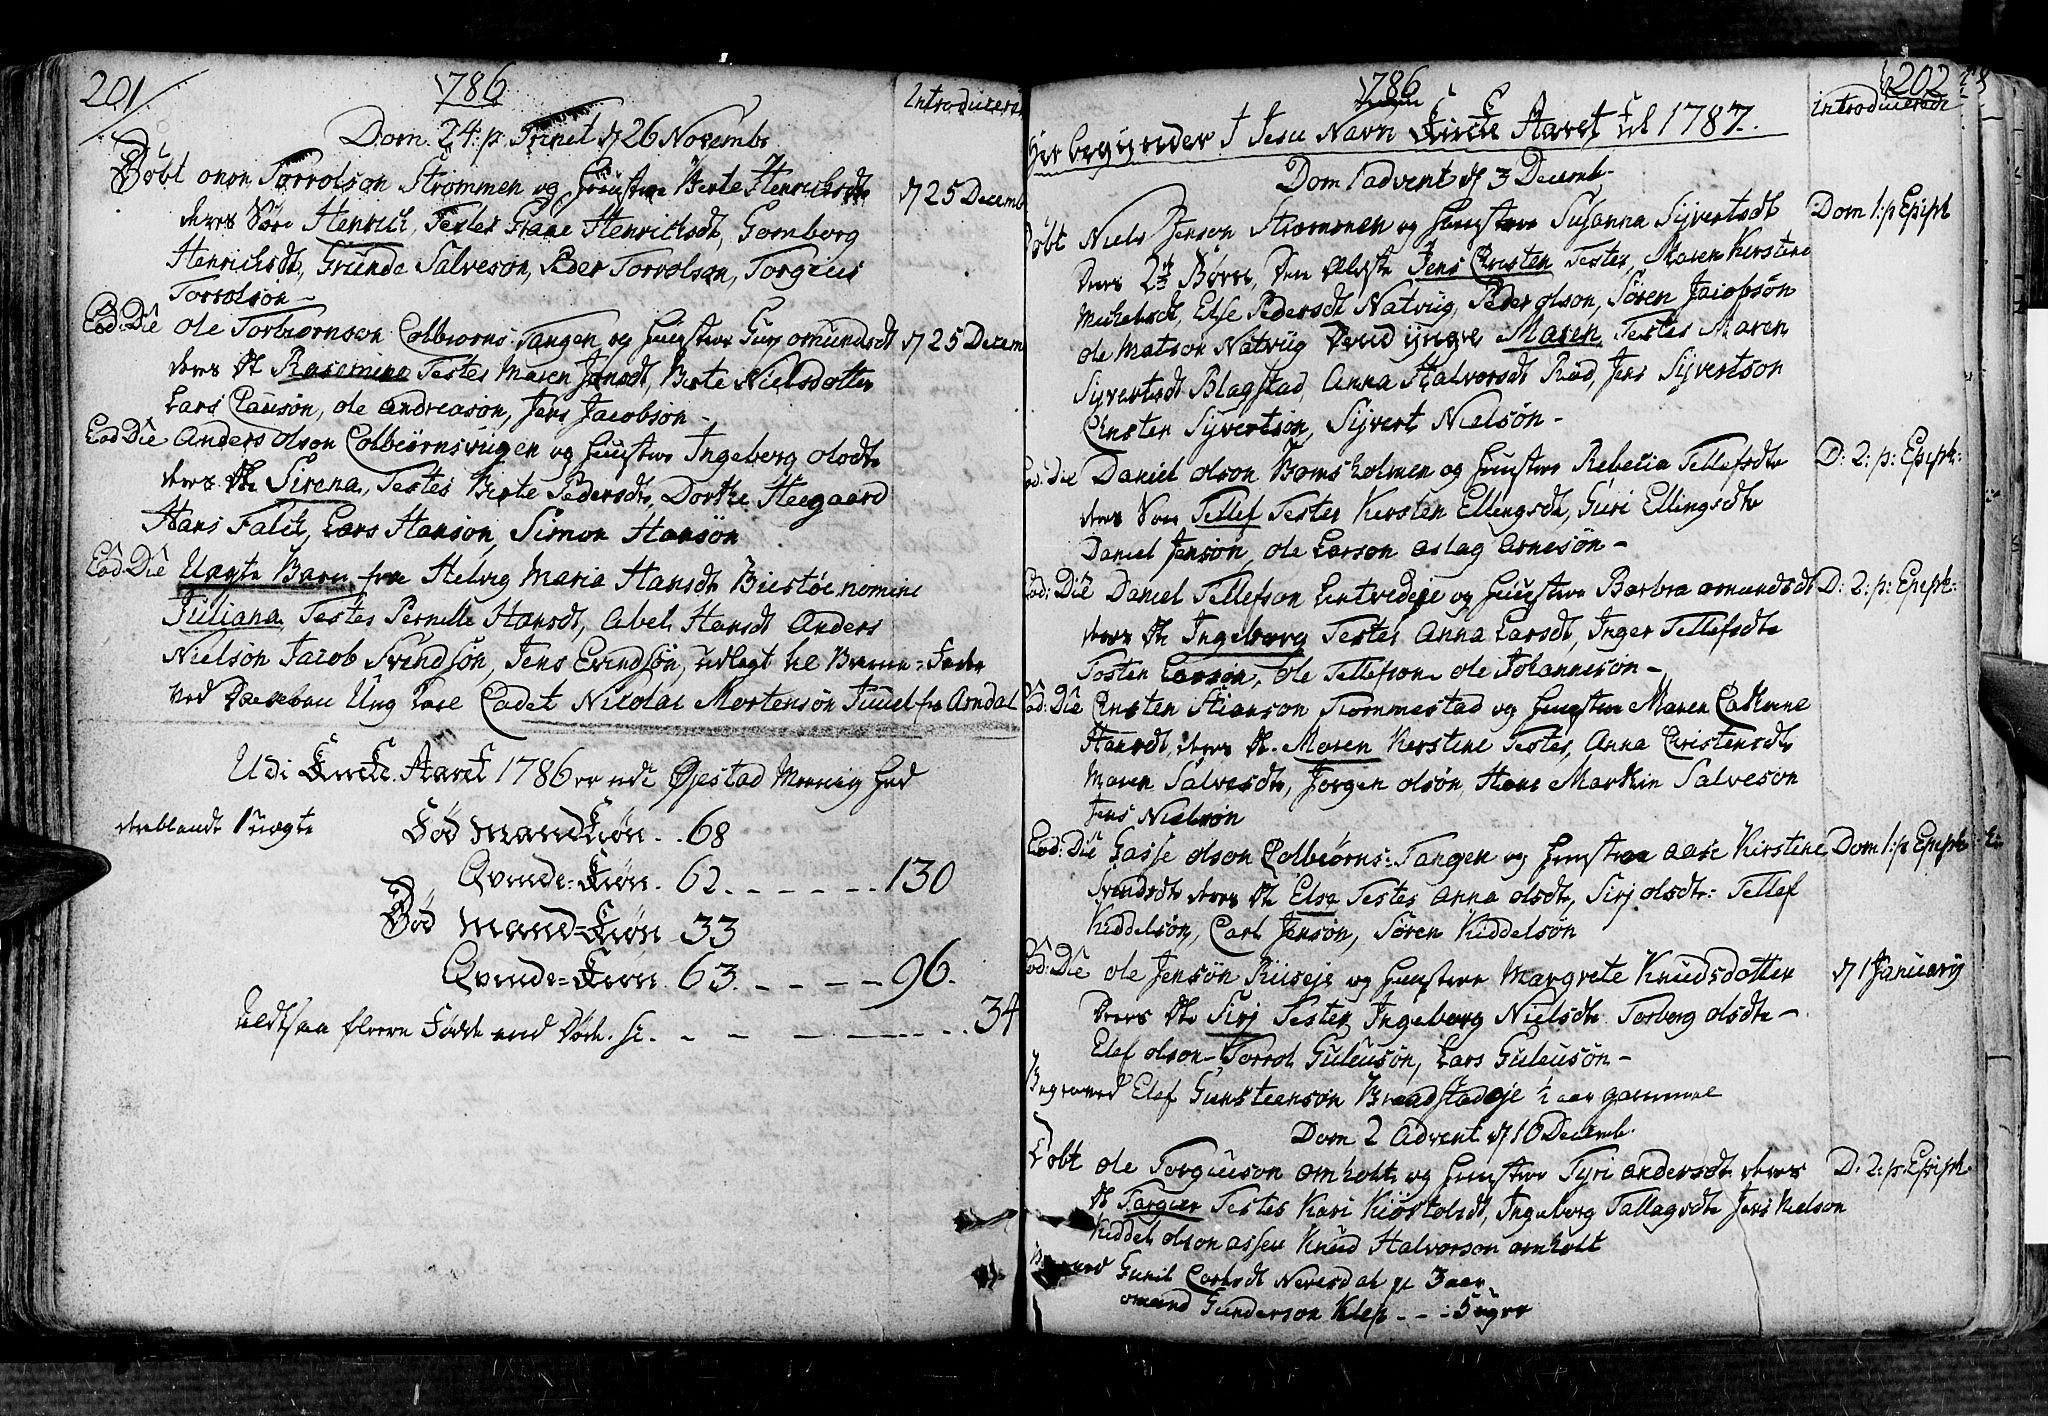 201
1786
Introducered
Dom. 24. p. Trinet d 26 Novembr
Döbt onon Torrolson Strömmen og Hustru Berte Henrichsdtr d 25 Decemb
deres Sön Henrich, Testes Henrichsdt, Gomborg
Henrichsdt, Grunde Salveson, Peder Torrolson, Torgius
Torrolsön
Eod: Die Ole Torbiörnson Colbiörns-Tangen og Hustru Gurj omundsdt d 25 Decem
deres D. Rasemine Testes Maren Jensdt, Berte Nielsdotter
Lars Clausön, ole andreasön, Jens Jacobsön
Eod: Die Anders olson Colbiörnsviigen og Hustru Ingeborg olsdtr
deres D. Sirena, Testes Berte Pedersdt, Dorthe Heegaard
Hans Falch, Lars Hansön, Simon Hansön
Eod: Die Uægte Barn fra Helvig Maria Hansdt Biestöe nomine
Juliana, Testes Pernille Hansdt, Abel Hansdt Anders
Nielsön Jacob Svendsön, Jens Evindsön, udlagt til Barne-Fader
ved Daaben Ung Karl Cadet Nicolai Mortensön Juuel fra Arndal
Udi Kirke Aaret 1786 er udi Öjestad Menig hed
iblandt 1 uægte Fød Mandkiön . . 68
Qvinde-Kiön . 62 . - - - - - 130
Död Mand-Kiön 33
Qvinde-Kiön . 63 . - - - - 96.
altsaa fleere Födde end Döde. - - - - - 34
1786
202
Introducered
Her begynder I Jesu Navn Kirke Aaret til 1787.
Dom 1 advent d 3 Decemb.
Döbt Niels Jenson Strömmen og Hustru Susanna Sijvertsdt Dom 1: p Epiph
deres 2de Börn, den Ældste Jens Christen Testes, Maren Kirstine
Michelsdt, Else Pedersdt Natvig, Peder olson, Sören Jacobsön
ole Matson Natviig Dend yngre Maren Testes Maren
Sijvertsdt Blagstad, Anna Halvorsdt Rød, Jens Sijvertson
Christen Sijvertsön, Sijvert Nielsön
Eod: Die Daniel olson Bomsholmen og Hustru Rebecca Tellefsdtr D: 2: p: Epiph:
deres Sön Tellef Testes Kirsten Ellingsdt, Guri Ellingsdtr
Daniel Jensön, ole Larson aslag arnesön
Eod: Die Daniel Tellefson Lentvedeje og Hustru Barbra omundsdt D: 2: p: Epiph:
deres D. Ingeborg Testes Anna Larsdt, Inger Tellefsdtr
Tosten Larsön, ole Tellefson ole Johannesön
Eod: Die Christen Stianson Trommestad og Hustru Maren Cathrine
Hansdt, deres D. Maren Kirstine Testes, Anna Christensdt,
Maren Salvesdtr, Jörgen olsön, Hans Marthin Salveson
Jens Nielsön
Eod: Die Gasse olson Colbiörns-Tangen og Hustru aase Kirstine Dom 1: p Epiph
Svendsdt deres D. Else Testes Anna olsdt, Sirj olsdtr: Tellef
Kiddelsön, Carl Jensön, Sören Kiddelsön
Eod: Die ole Jensön Riiseje og Hustru Margrete Knudsdotter d 1 Januarij
Deres D. Sirj Testes Ingeborg Nielsdt Torborg olsdtr
Elef olson Torrol Guleusön, Lars Guleusön
Begraved Elef Gunsteensön Braadstadeje ½ aar gammel
Dom 2 Advent d 10 Decemb.
Döbt ole Torgiusön omholt og Hustru Tyri andersdt deres D: 2: p: Epiph
D. Torgier Testes Kari Kiöstolsdt, Ingeborg Tallagsdt Jens Nielson
Kiddel olson assen Knud Halvorson omholt
Gunil Carlsdt Neversdal 3 aar
omund Gunderson Klep - - 5 uger